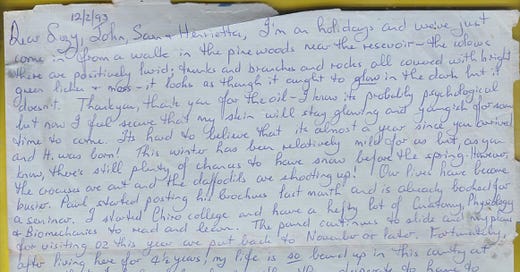 12/2/93
Dear Suzy, John, Sam & Henrietta, I'm on holidays and we've just
come in from a walk in the pinewoods near the resevoir - the colours
there are positively lurid; trunks and branches and rocks, all covered with bright
green lichen & moss - it looks as though it ought to glow in the dark but it
doesn't. Thankyou, thank you for the oil - I know its probably psychological
but now I feel secure that my skin will stay glowing and youngish for some
time to come. Its hard to believe that its almost a year since you arrived
and H. was born! This winter has been relatively mild for us but, as you
know, there's still plenty of chances to have snow before the spring. However
the crocuses are out and the daffodils are shooting up! Our lives have become
busier. Paul started posting his brochures last month and is already booked for
a seminar. I started Chiro college and have a hefty lot of Anatomy, Physiology
& Biomechanics to read and learn. The pound continues to slide and my plans
for visiting OZ this year are put back to November or later. Fortunately,
after living here for 4½ years, my life is so bound up in this country at
to hang to